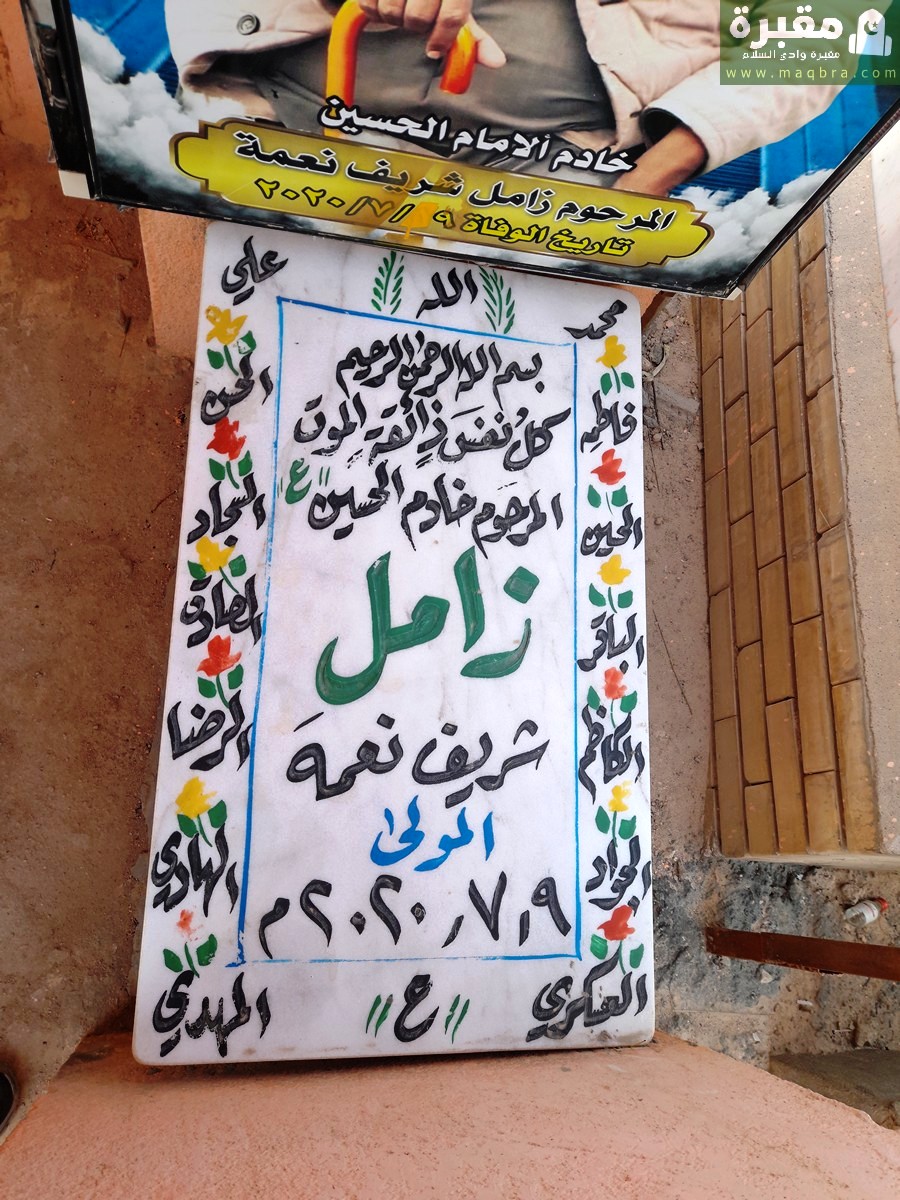 مقبرة
مقبرة وادي السلام
www.maqbra.com
خادم الامام الحسين
المرحوم زامل شريف نعمة
تاريخ الوفاة ٢٠٢٠/٧/٩
علي
الله
محمد
فاطمه
الحسن
الحسين
السجاد
الباقر
الصادق
الكاظم
الرضا
الجواد
الهادي
العسكري
المهدي
بسم الله الرحمن الرحيم
كلُ نفسَ ذِائقة الموت
المرحوم خادم الحسين "ع"
زامل
شريف نعمه
المولى
٢٠٢٠٫٧٫٩م
"ع"